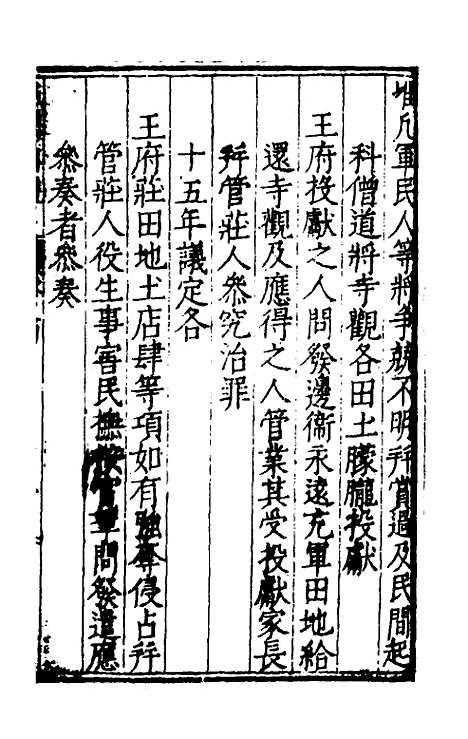 凡軍民人等將爭競不明幷賣過及民間起
科僧道將寺觀各田土朦朧投獻
王府投獻之人問發邊衛永遠充軍田地給
還寺觀及應得之人管業其受投獻家長
幷管莊人叅究治罪
十五年議定各
王府莊田地土店肆等項如有強奪侵占幷
管莊人役生事害民撫按官拏問發遣應
叅奏者叅奏